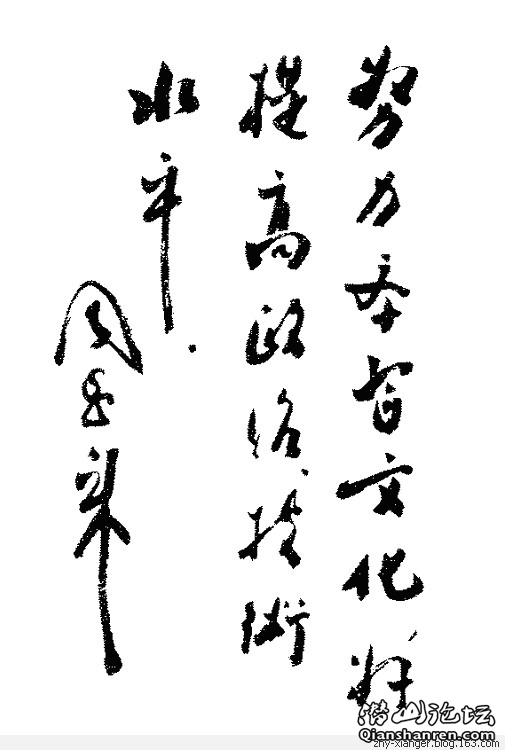 努力学習文化,并
提高政治、技術
水平.
周恩来
潜山论坛
Qianshanren.com
zhy-xianger.blog.163.com